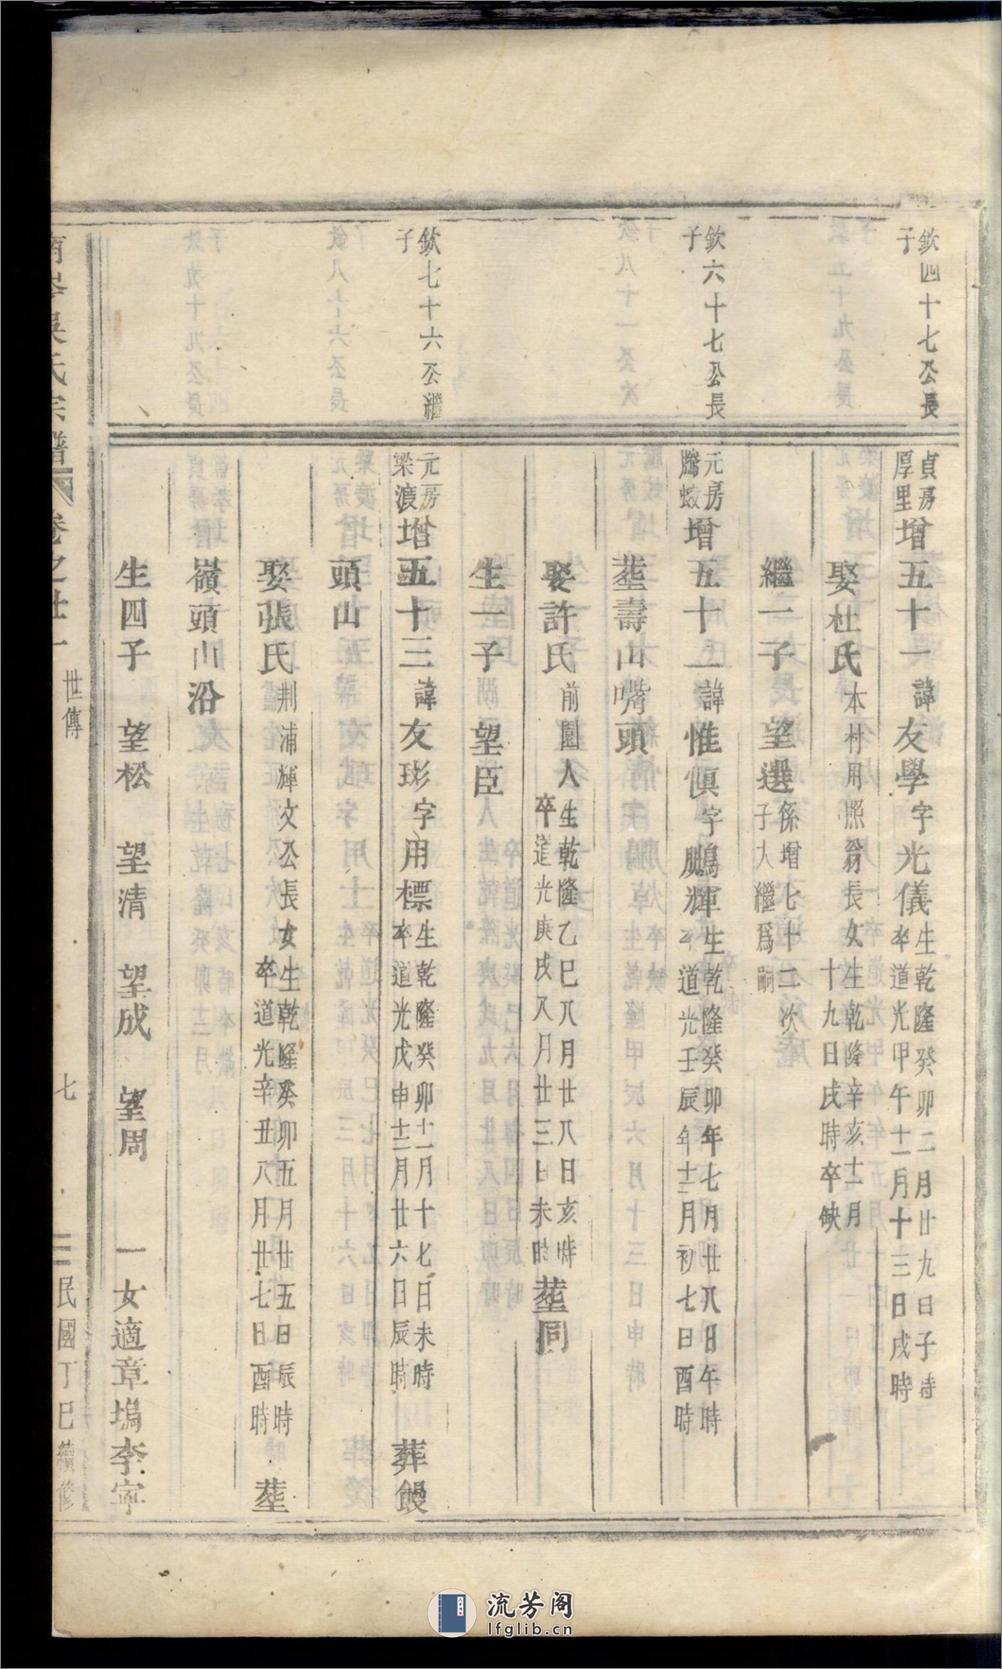 欽四十七公長
子
貞房
厚里
增五十一諱友學字光儀
生乾隆癸卯二月廿九日子時
卒道光甲午十一月十三日戌時
娶杜氏
本村用照翁長女生乾隆辛亥十一月
十九日戌時卒缺
繼一子 望選
係增七十二次
子大繼爲嗣
欽六十七公長
子
元房
騰蛟
增五十二諱惟愼字鵬輝
生乾隆癸卯年七月廿八日午時
卒道光壬辰年十二月初七日酉時
塟壽山嘴頭
娶許氏
前園人生乾隆乙巳八月廿八日亥時
卒道光庚戌八月廿三日未時
塟同
生一子 望臣
欽七十六公繼
子
元房
梁渡
增五十三諱友珳字用標
生乾隆癸卯十一月十七日未時
卒道光戊申十二月廿六日辰時
葬饅
頭山
娶張氏
荆浦煇文公長女生乾隆癸卯五月廿五日辰時
卒道光辛丑八月廿七日酉時
塟
嶺頭山沿
生四子 望松 望清 望成 望周 一女適章塢李寧
吳氏宗譜 卷之廿一 世傳 七 民國丁巳續修
流芳阁
lfglib.cn